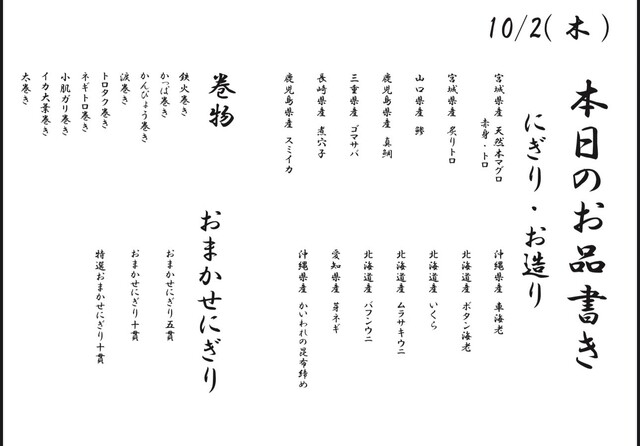 10/2(木)
本日のお品書き
にぎり・お造り
宮城県産 天然本マグロ
赤身・トロ
宮城県産 炙りトロ
山口県産 鯵
鹿児島県産 真鯛
三重県産 ゴマサバ
長崎県産 煮穴子
鹿児島県産 スミイカ
沖縄県産 車海老
北海道産 ボタン海老
北海道産 いくら
北海道産 ムラサキウニ
北海道産 バフンウニ
愛知県産 芽ネギ
沖縄県産 かいわれの昆布締め
巻物
鉄火巻き
かっぱ巻き
かんぴょう巻き
涙巻き
トロタク巻き
ネギトロ巻き
小肌ガリ巻き
イカ大葉巻き
太巻き
おまかせにぎり
おまかせにぎり五貫
おまかせにぎり十貫
特選おまかせにぎり十貫